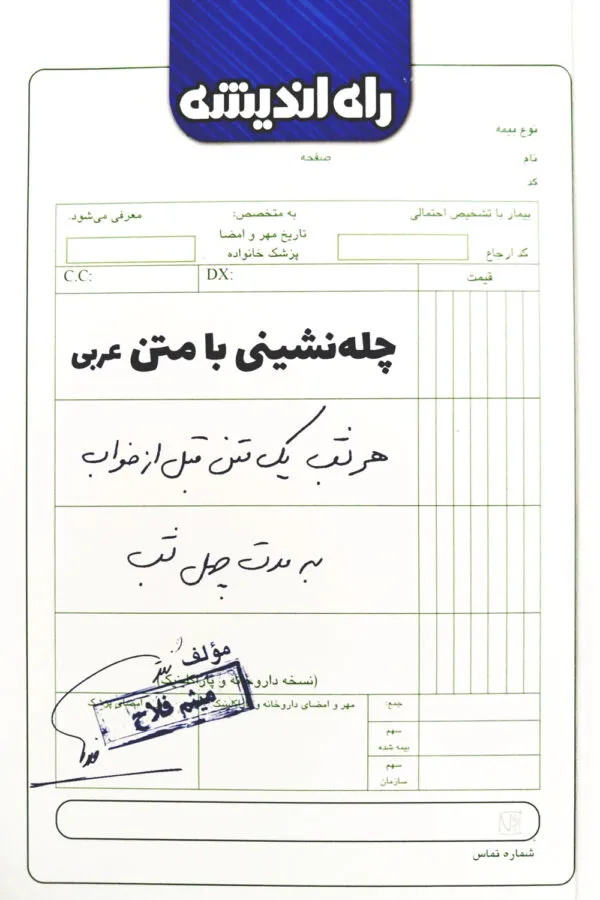 راه اندیشه
نوع بیمه
نام
صفحه
کد
بیمار با تشخیص احتمالی
به متخصص:
معرفی می‌شود.
کد ارجاع
تاریخ مهر و امضا
پزشک خانواده
C.C:
DX:
قیمت
چله‌نشینی با متن عربی
هر شب یک متن قبل از خواب
به مدت چهل شب
مؤلف
(نسخه داروخانه و پاراکلینیک)
میثم فلاح
مهر و امضای داروخانه و پاراکلینیک
امضای پزشک
جمع:
سهم
بیمه شده
سهم
سازمان
شماره تماس